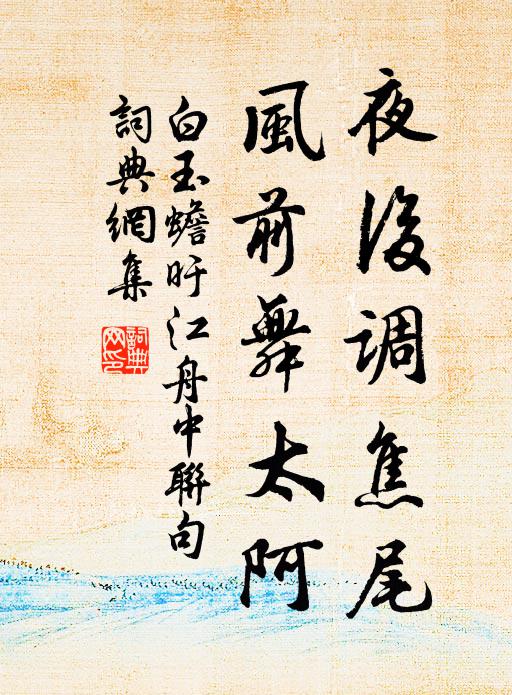 夜後調焦尾
風前舞太阿
白玉蟾旴江舟中聯句
詞典網集
詞典
網印